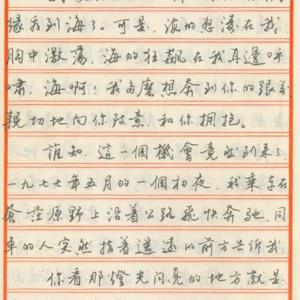 缘看到海了。可是，浪的怒涛在我
胸中激荡，海的狂飙在我耳邊呼
啸，海啊！我多麽想奔到你的跟前
親切地向你訴素，和你拥抱。
誰知，這一個機會竟然到来了
一九七七年五月的一個初夜，我乘车在
蒼茫原野上沿着公路飛快奔驰，同
車的人突然指着遥遠的前方告訴我：
"你看那燈光闪亮的地方就是